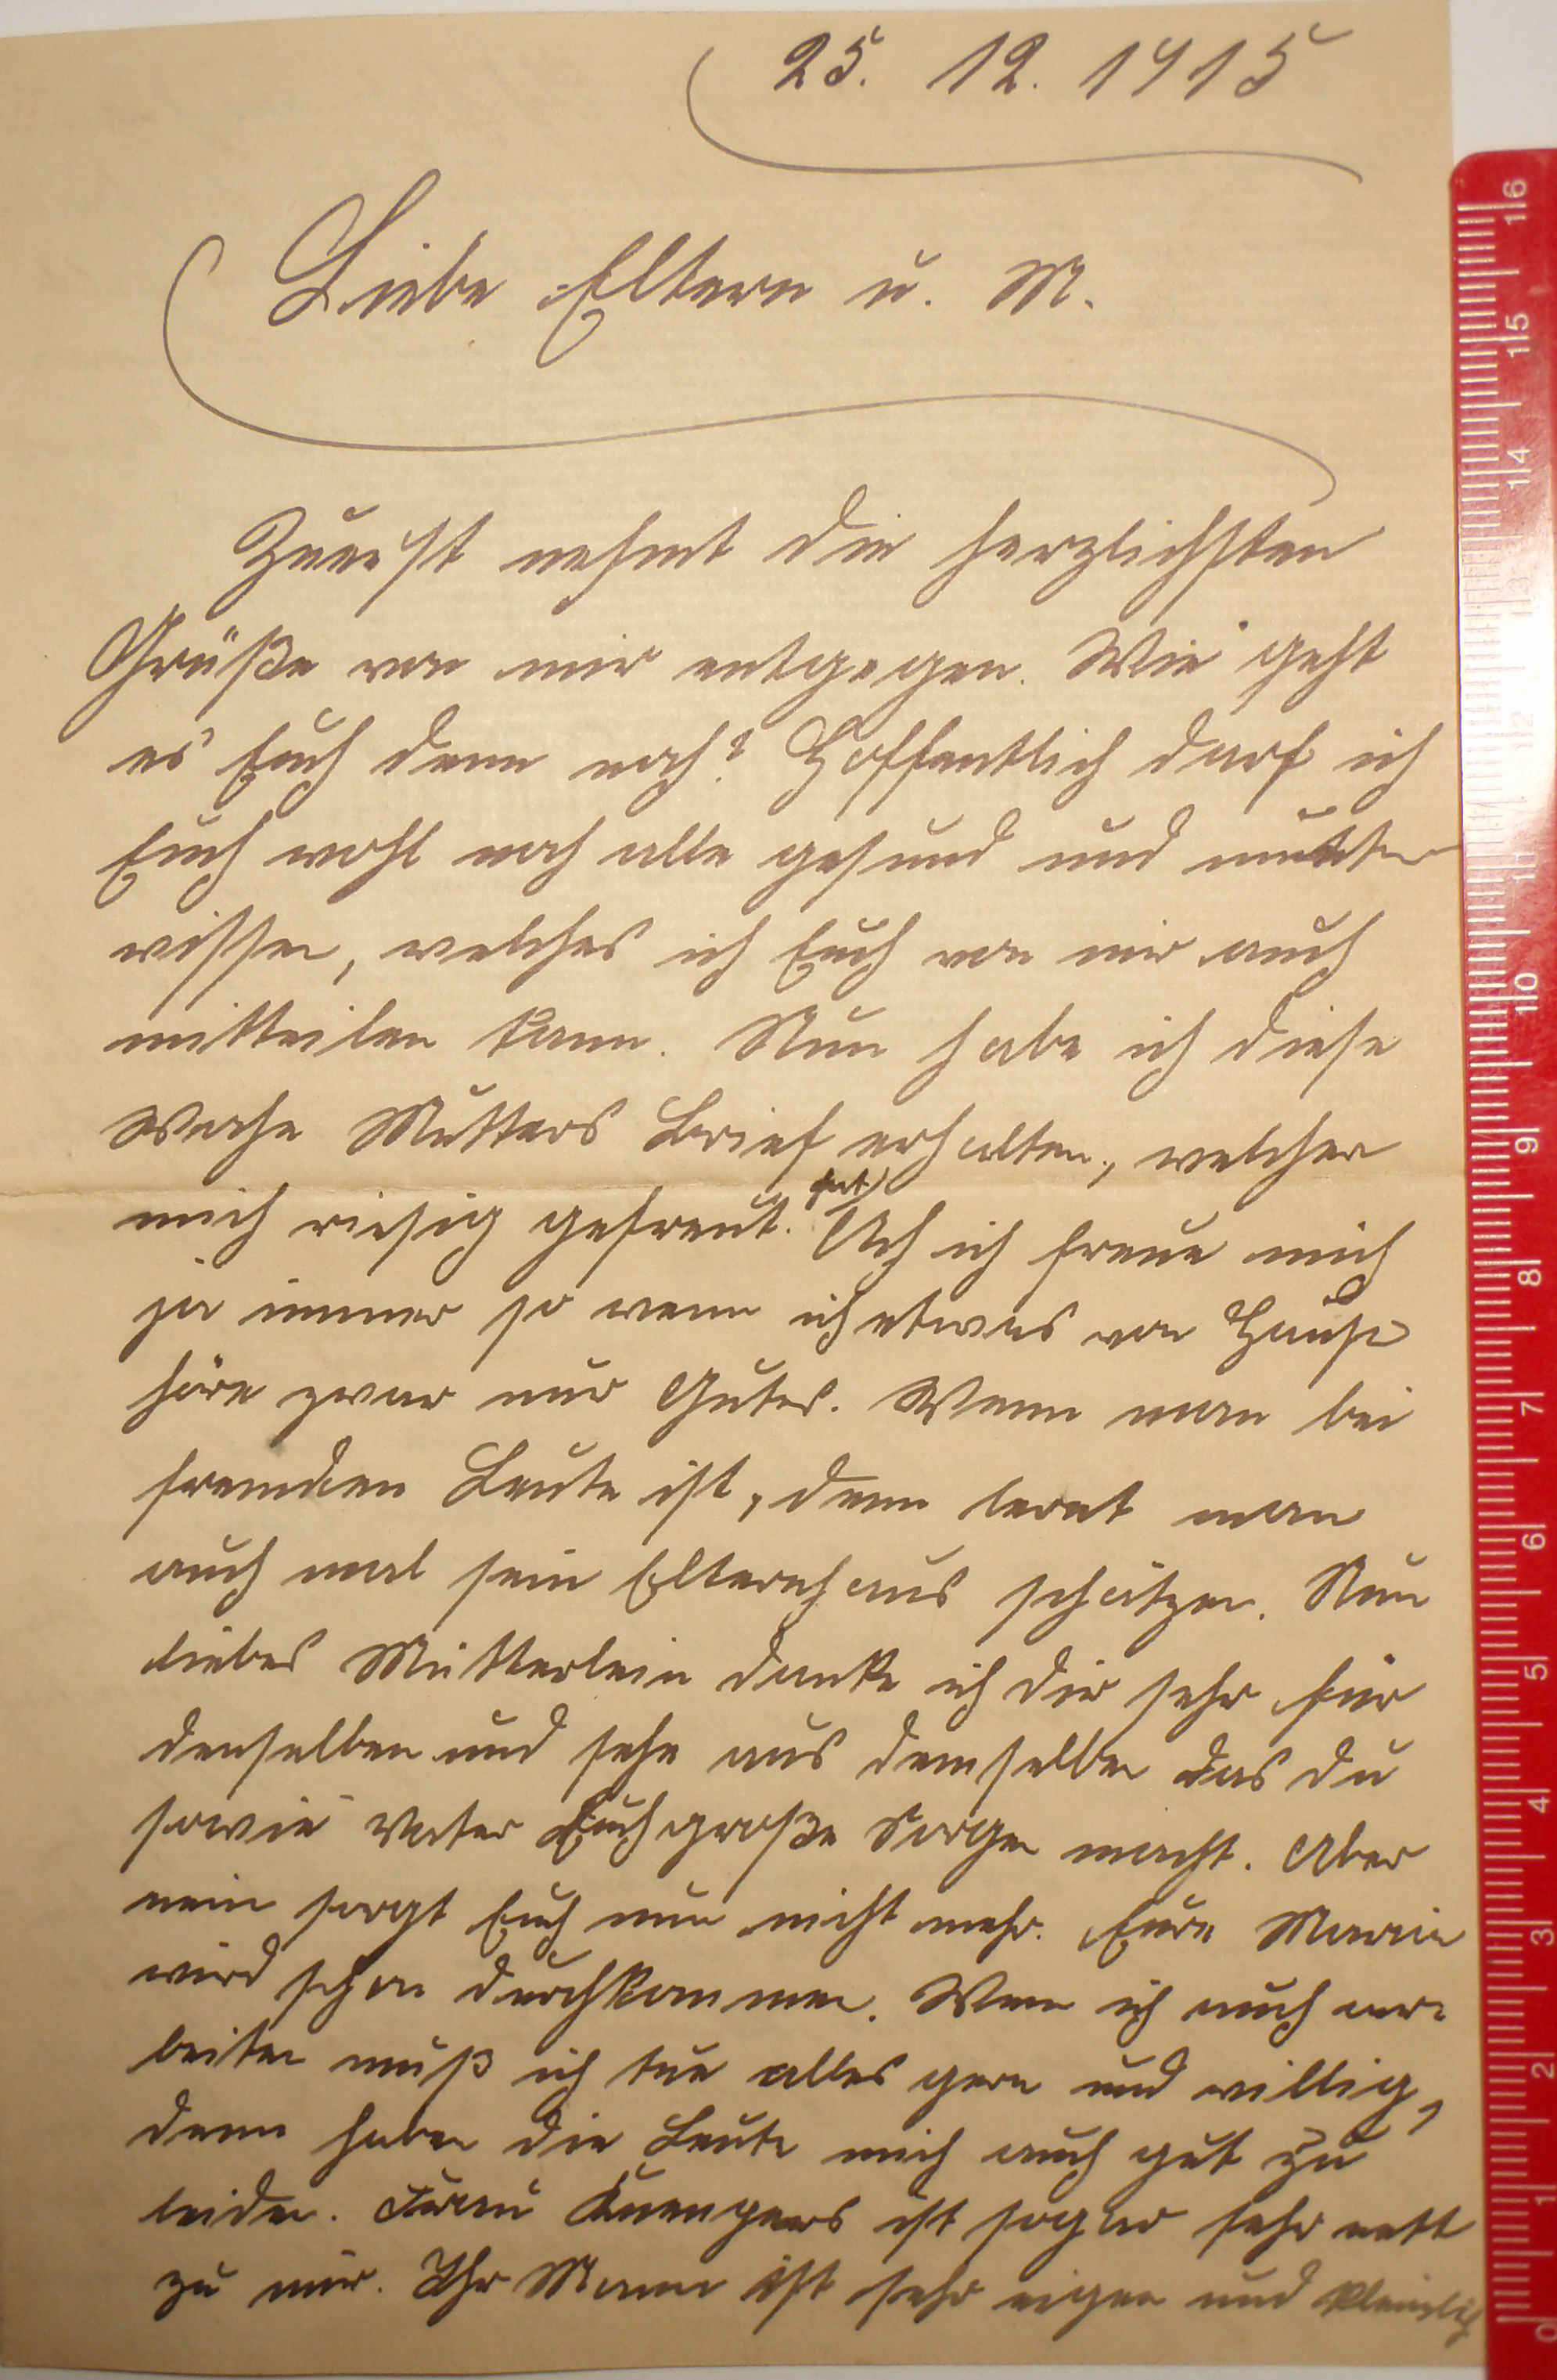 25. 12. 1915
Liebe Eltern u. M.
Zuerst nehmt die herzlichsten
Grüße von mir entgegen. Wie geht
es Euch denn noch? Hoffentlich darf ich
Euch wohl noch alle gesund und munter
wissen, welches ich Euch von mir auch
mitteilen kann. Nun habe ich diese
Woche Mutters Brief erhalten, welcher
mich riesig gefreut. hat Ach ich freue mich
ja immer so wenn ich etwas von Hause
höre zwar nur Gutes. Wenn man bei
fremden Leute ist, dann lernt man
auch mal sein Elternhaus schätzen. Nun
liebes Mütterlein danke ich dir sehr für
denselben und sehe aus demselben das du
sowie Vater Euch große Sorgen macht. Aber
nein sorgt Euch nun nicht mehr. Eure Maria
wird schon durchkommen. Wenn ich auch ar-
beiten muß ich tue alles gern und willig,
denn haben die Leute mich auch gut zu
leiden. Frau ist sogar sehr nett
zu mir. Ihr Mann ist sehr eigen und kleinlich
16
15
14
13
12
11
10
9
8
7
6
5
4
3
2
1
0